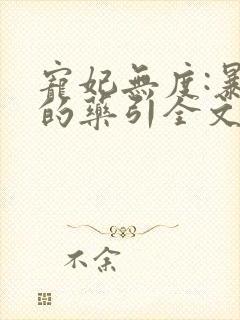 寵妃無度:暴
的藥引全文
不余